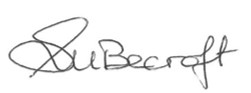 Sue Becroft